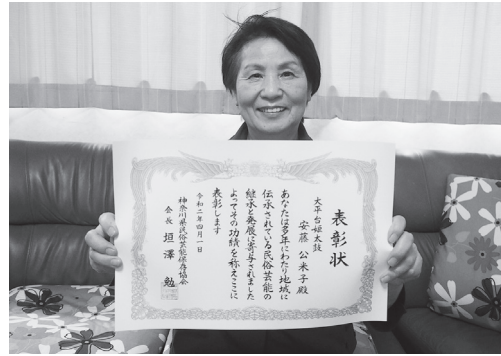 表彰状
大平台姫太鼓
安藤公米子殿
あなたは多年にわたり地域に
伝承されている民俗芸能の
継承と発展に寄与されました
よってその功績を称えここに
表彰します
令和二年四月一日
神奈川県民俗芸能保存協会
会長 垣澤 勉